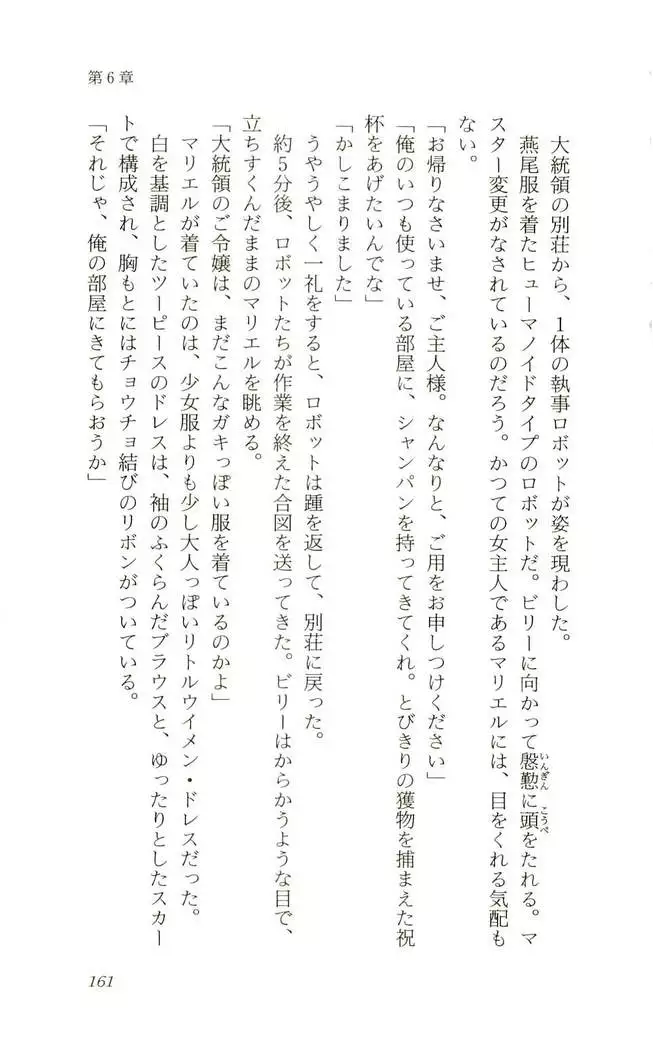 第6章
大統領の別荘から、1体の執事ロボットが姿を現わした。
燕尾服を着たヒューマノイドタイプのロボットだ。ビリーに向かって慇懃に頭をたれる。マ
いんぎん
こうべ
スター変更がなされているのだろう。かつての女主人であるマリエルには、目をくれる気配も
ない。
「お帰りなさいませ、ご主人様。なんなりと、ご用をお申しつけください」
「俺のいつも使っている部屋に、シャンパンを持ってきてくれ。とびきりの獲物を捕まえた祝
杯をあげたいんでな」
「かしこまりました」
うやうやしく一礼をすると、ロボットは踵を返して、別荘に戻った。
約5分後、ロボットたちが作業を終えた合図を送ってきた。ビリーはからかうような目で、
立ちすくんだままのマリエルを眺める。
「大統領のご令嬢は、まだこんなガキっぽい服を着ているのかよ」
マリエルが着ていたのは、少女服よりも少し大人っぽいリトルウイメン・ドレスだった。
白を基調としたツーピースのドレスは、袖のふくらんだブラウスと、ゆったりとしたスカー
トで構成され、胸もとにはチョウチョ結びのリボンがついている。
「それじゃ、俺の部屋にきてもらおうか」
161